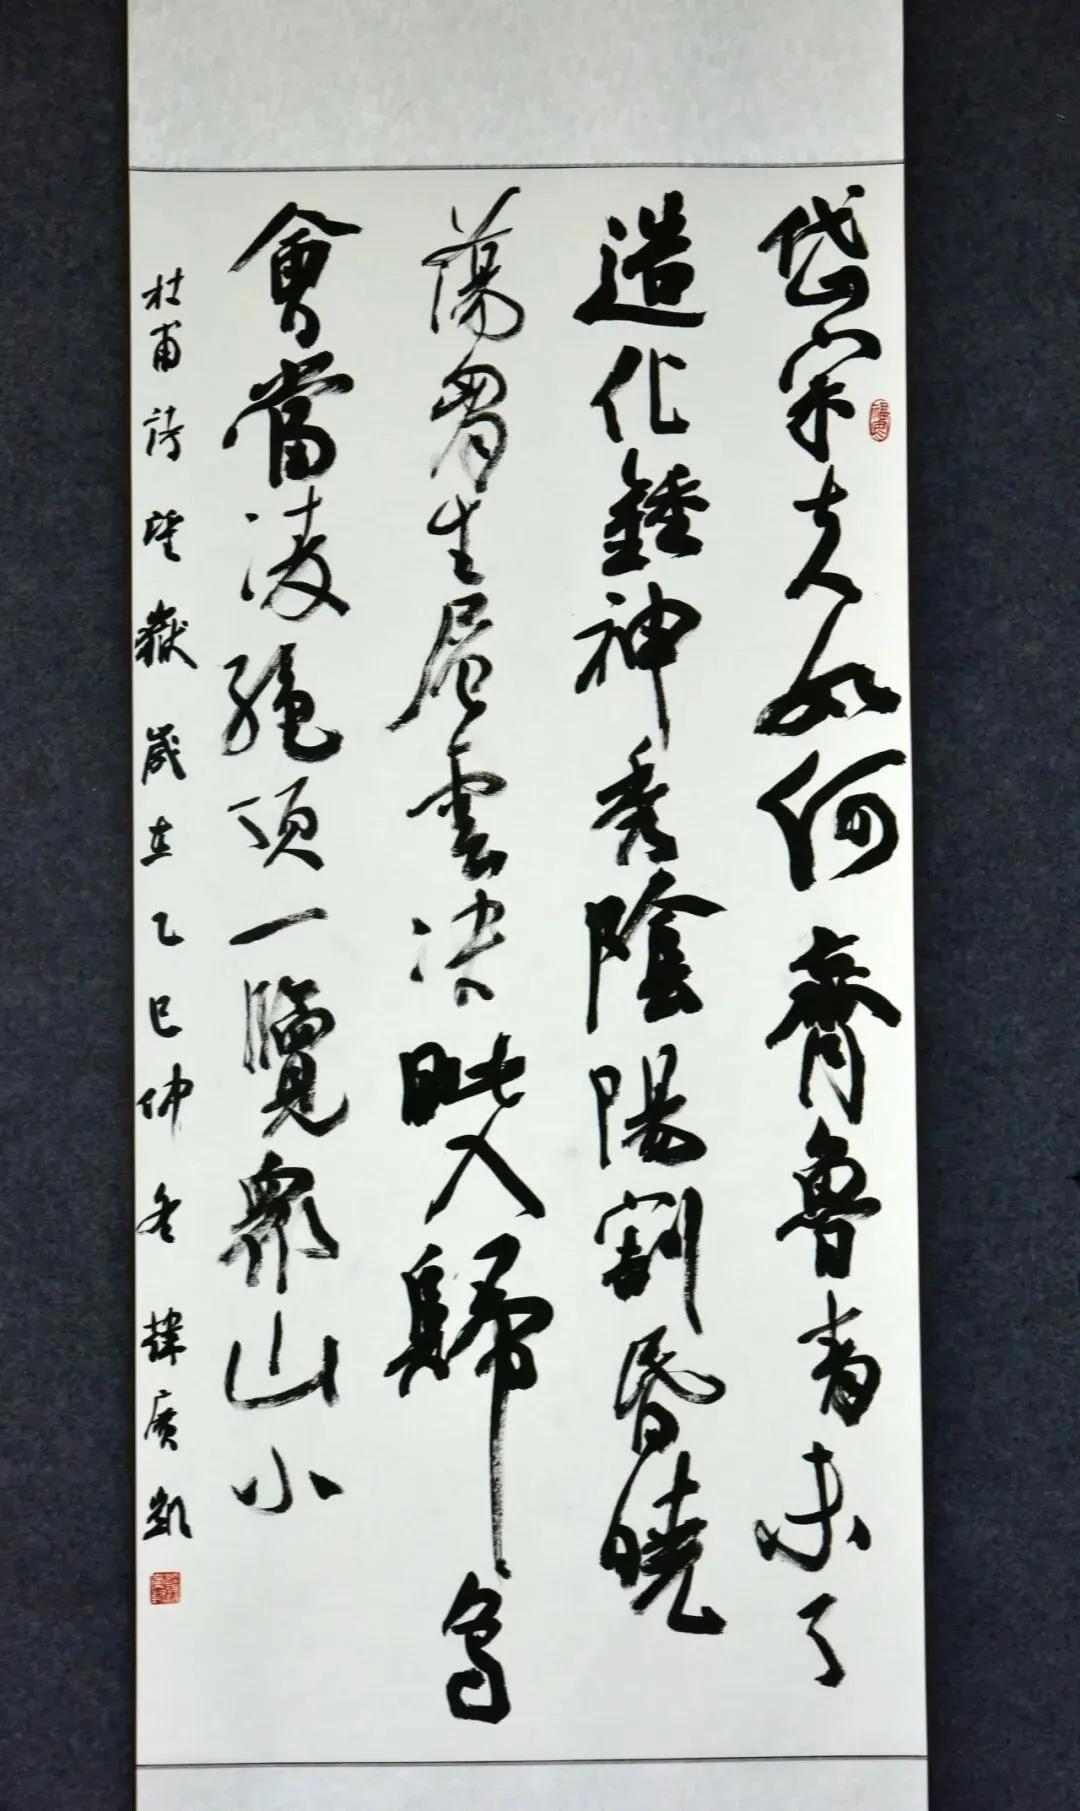 岱宗夫如何齊魯青未了
造化鍾神秀陰陽割昏曉
蕩胷生層雲決眦入歸鳥
會當凌絕頂一覽眾山小
杜甫詩望嶽歲在乙巳仲冬韓廣凱